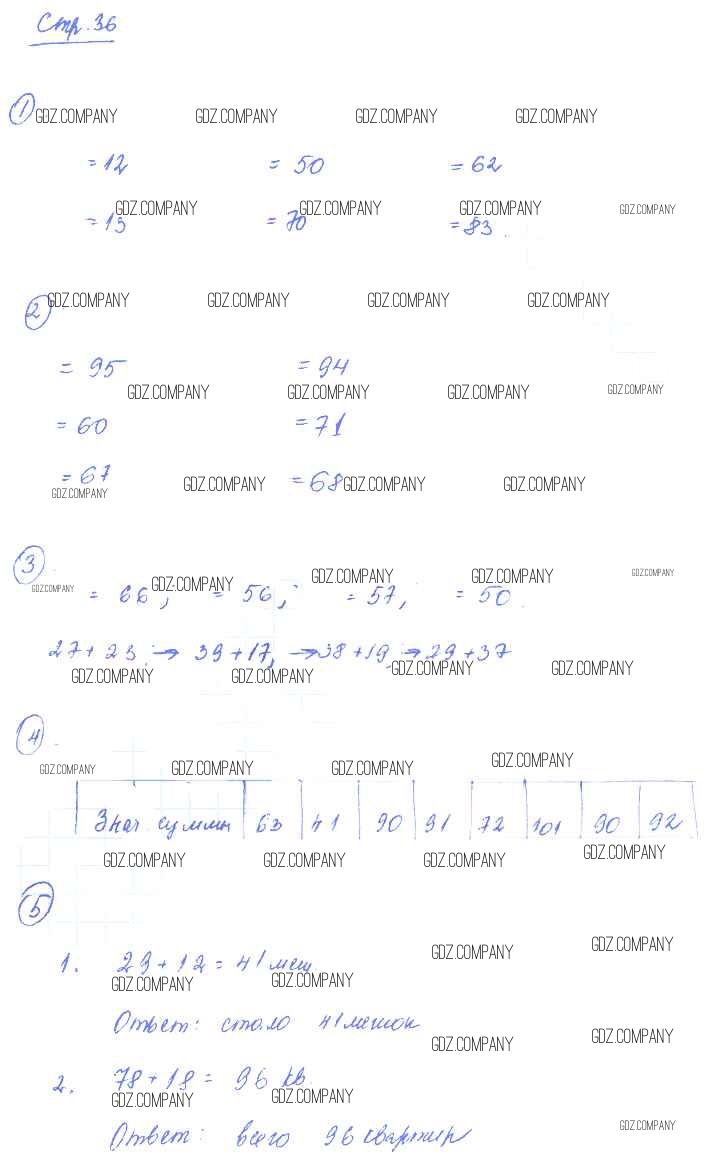 Стр. 36
1
GDZ.COMPANY GDZ.COMPANY GDZ.COMPANY GDZ.COMPANY
= 12 = 50 = 62
GDZ.COMPANY GDZ.COMPANY GDZ.COMPANY GDZ.COMPANY
= 15 = 70 = 83.
GDZ.COMPANY GDZ.COMPANY GDZ.COMPANY GDZ.COMPANY
2
= 95 = 94
GDZ.COMPANY GDZ.COMPANY GDZ.COMPANY GDZ.COMPANY
= 60 = 71
= 67 = 68
GDZ.COMPANY GDZ.COMPANY GDZ.COMPANY GDZ.COMPANY
3
GDZ.COMPANY GDZ.COMPANY GDZ.COMPANY GDZ.COMPANY GDZ.COMPANY
= 66; = 56, = 57, = 50
27+23 → 39+17, → 38+19, → 29+37
GDZ.COMPANY GDZ.COMPANY GDZ.COMPANY GDZ.COMPANY
4
GDZ.COMPANY GDZ.COMPANY GDZ.COMPANY GDZ.COMPANY
Знач. суммы 63 41 90 91 72 101 90 92
GDZ.COMPANY GDZ.COMPANY GDZ.COMPANY GDZ.COMPANY
5
1. 29+12 = 41 меш.
GDZ.COMPANY GDZ.COMPANY GDZ.COMPANY GDZ.COMPANY
Ответ: стало 41 мешок
GDZ.COMPANY GDZ.COMPANY
2. 78+18 = 96 кв.
GDZ.COMPANY GDZ.COMPANY
Ответ: всего 96 квартир
GDZ.COMPANY